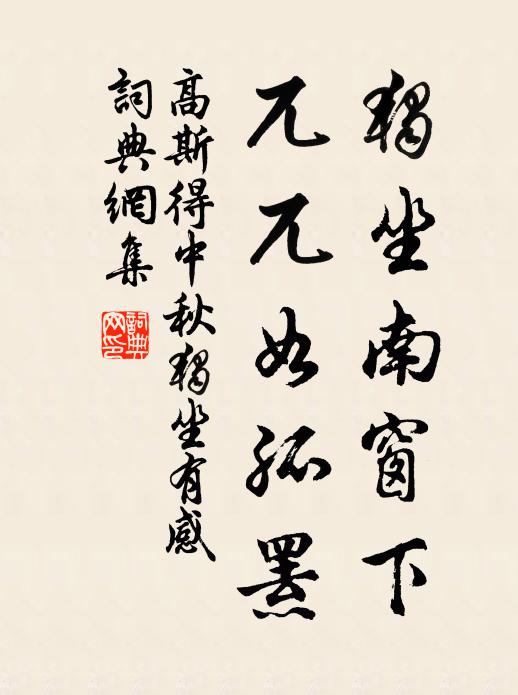 獨坐南窗下
兀兀如孤羆
高斯得中秋獨坐有感
詞典網集
詞典網印